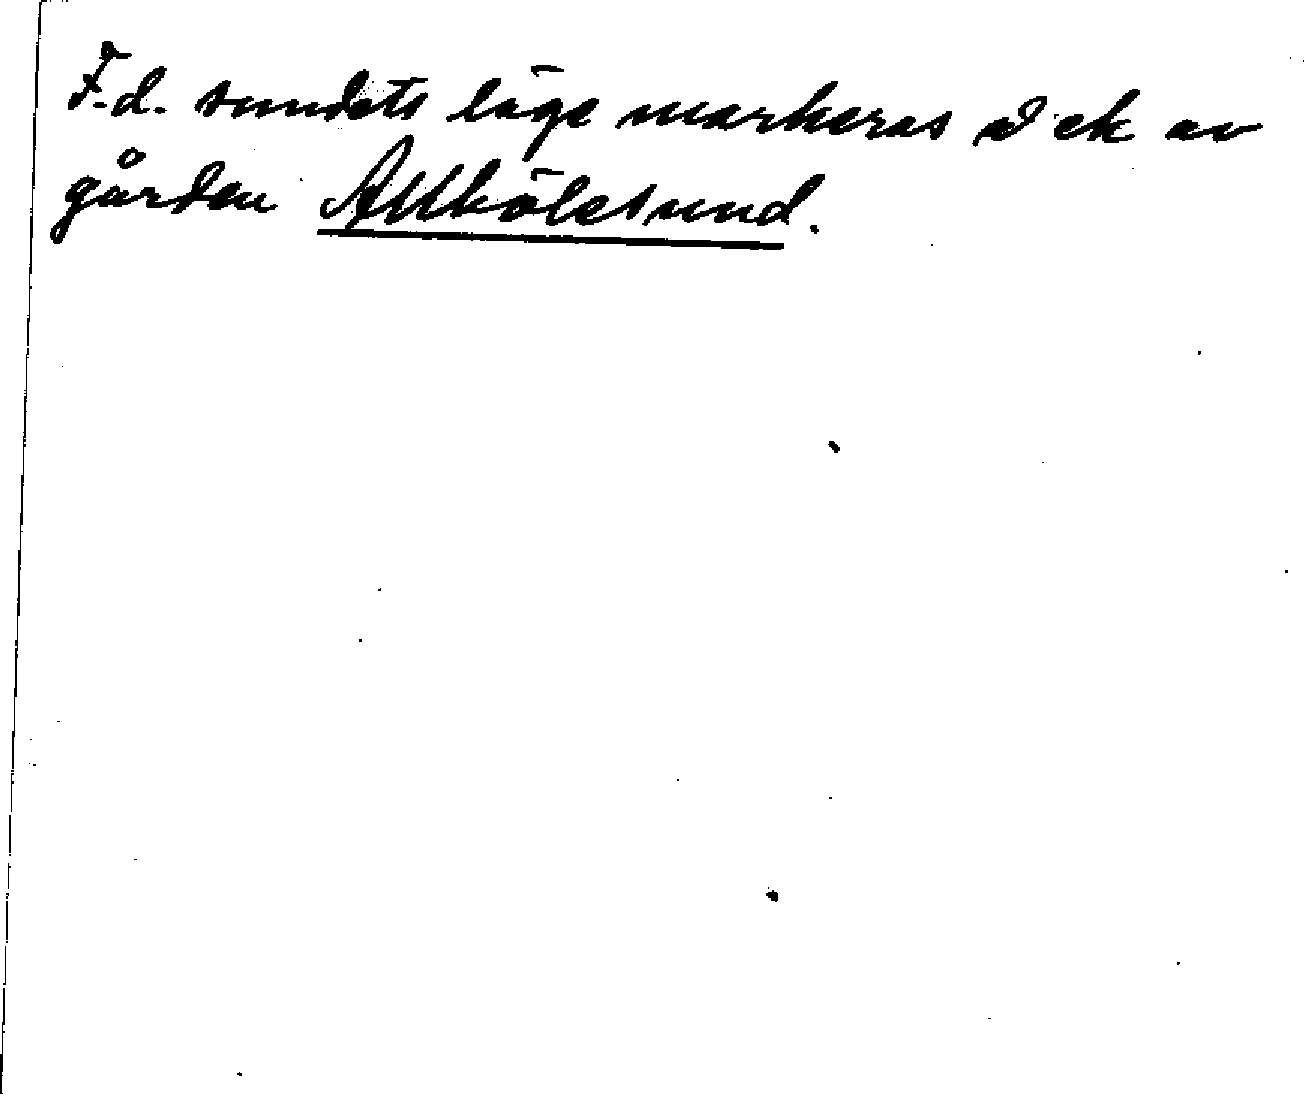 F.d. sundets läge markeras å ek av
gården Allkölesund.